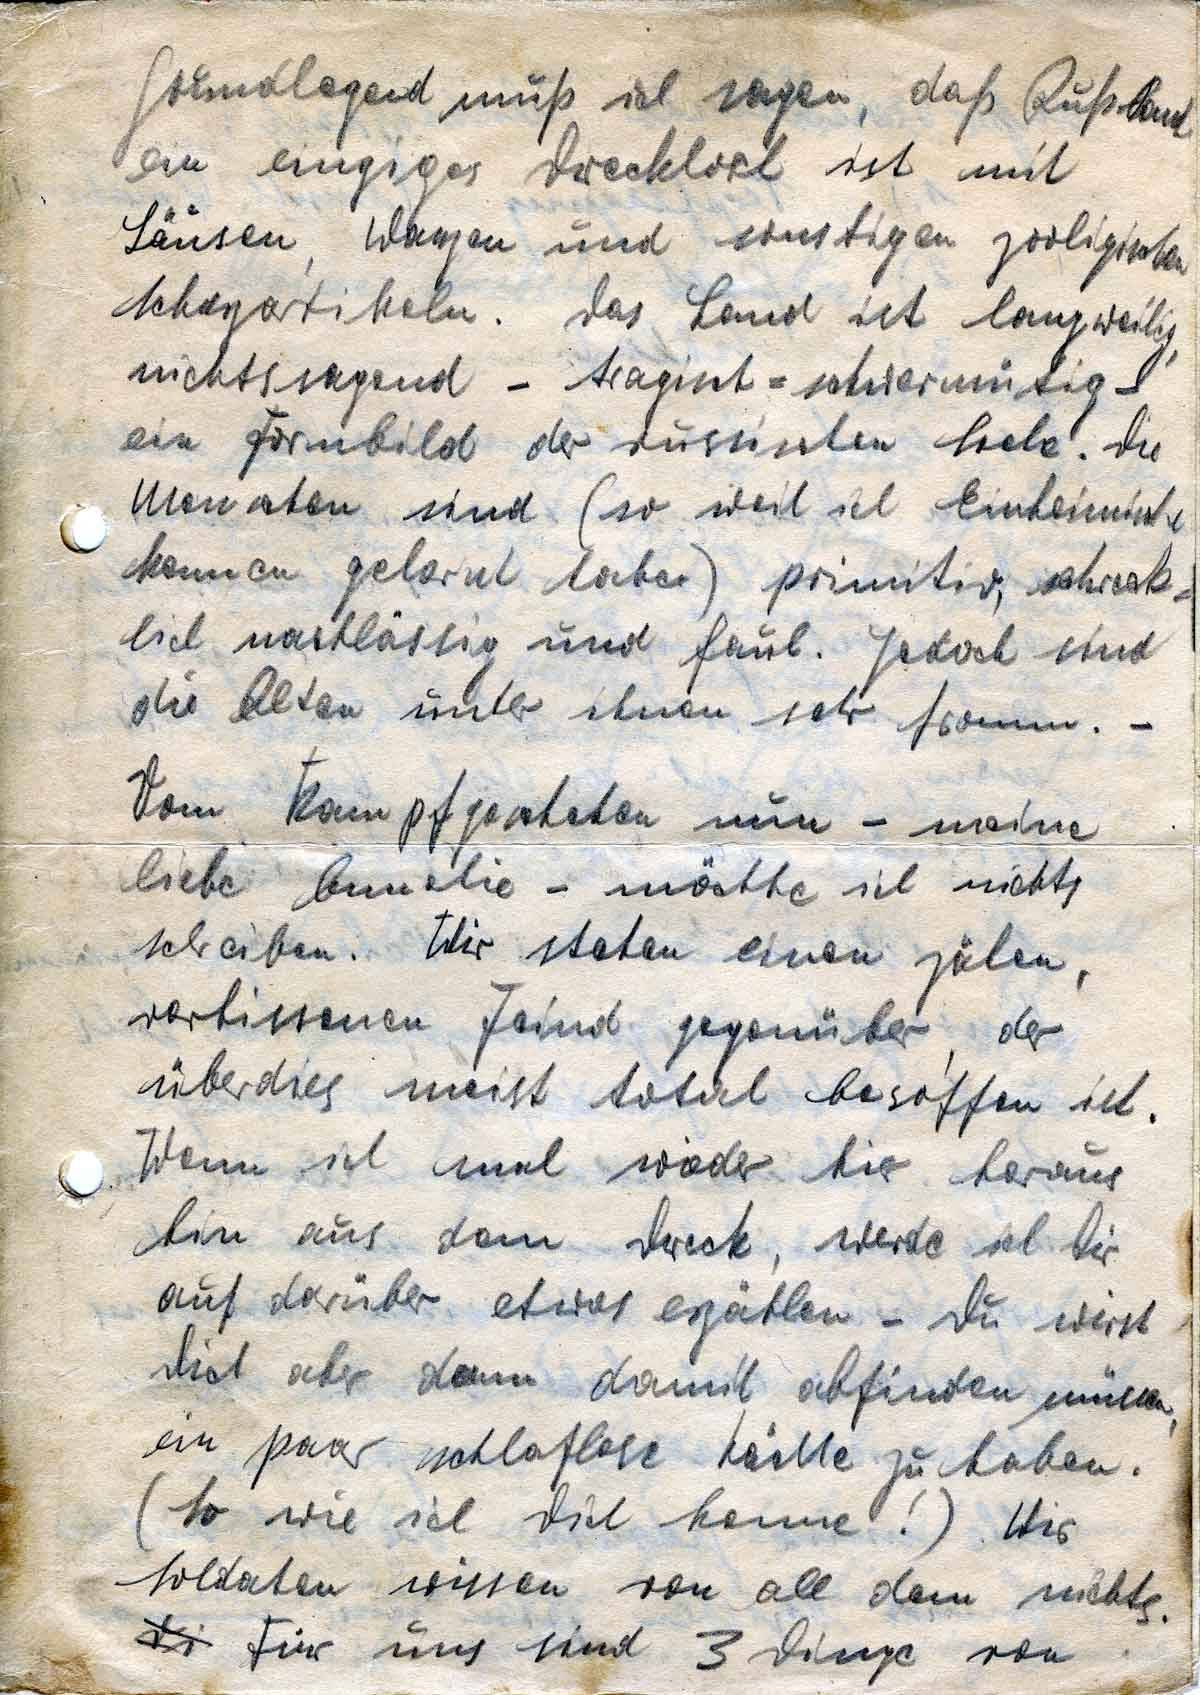 Grundlegend muß ich sagen, daß Rußland
ein einziges Dreckloch ist mit
Läusen, Wanzen und sonstigen zooligischen
Scherzartikeln. Das Land ist langweilig,
nichtssagend – tragisch=schwermütig –
ein Formbild der russischen Seele. Die
Menschen sind (so weit ich Einheimische
kennen gelernt habe) primitiv, schreck=
lich nachlässig und faul. Jedoch sind
die Alten unter ihnen sehr fromm. –
Vom Kampfgeschehen nun – meine
liebe Annelie – möchte ich nichts
schreiben. Wir stehen einen zähen,
verbissenen Feind gegenüber, der
überdies meist total besoffen ist.
Wenn ich mal wieder hier heraus
bin aus dem Dreck, werde ich Dir
auch darüber etwas erzählen – Du wirst
Dich aber dann damit abfinden müssen,
ein paar schlaflose Nächte zu haben.
(So wie ich Dich kenne!) Wir
Soldaten wissen von all dem nichts.
Für uns sind 3 Dinge von